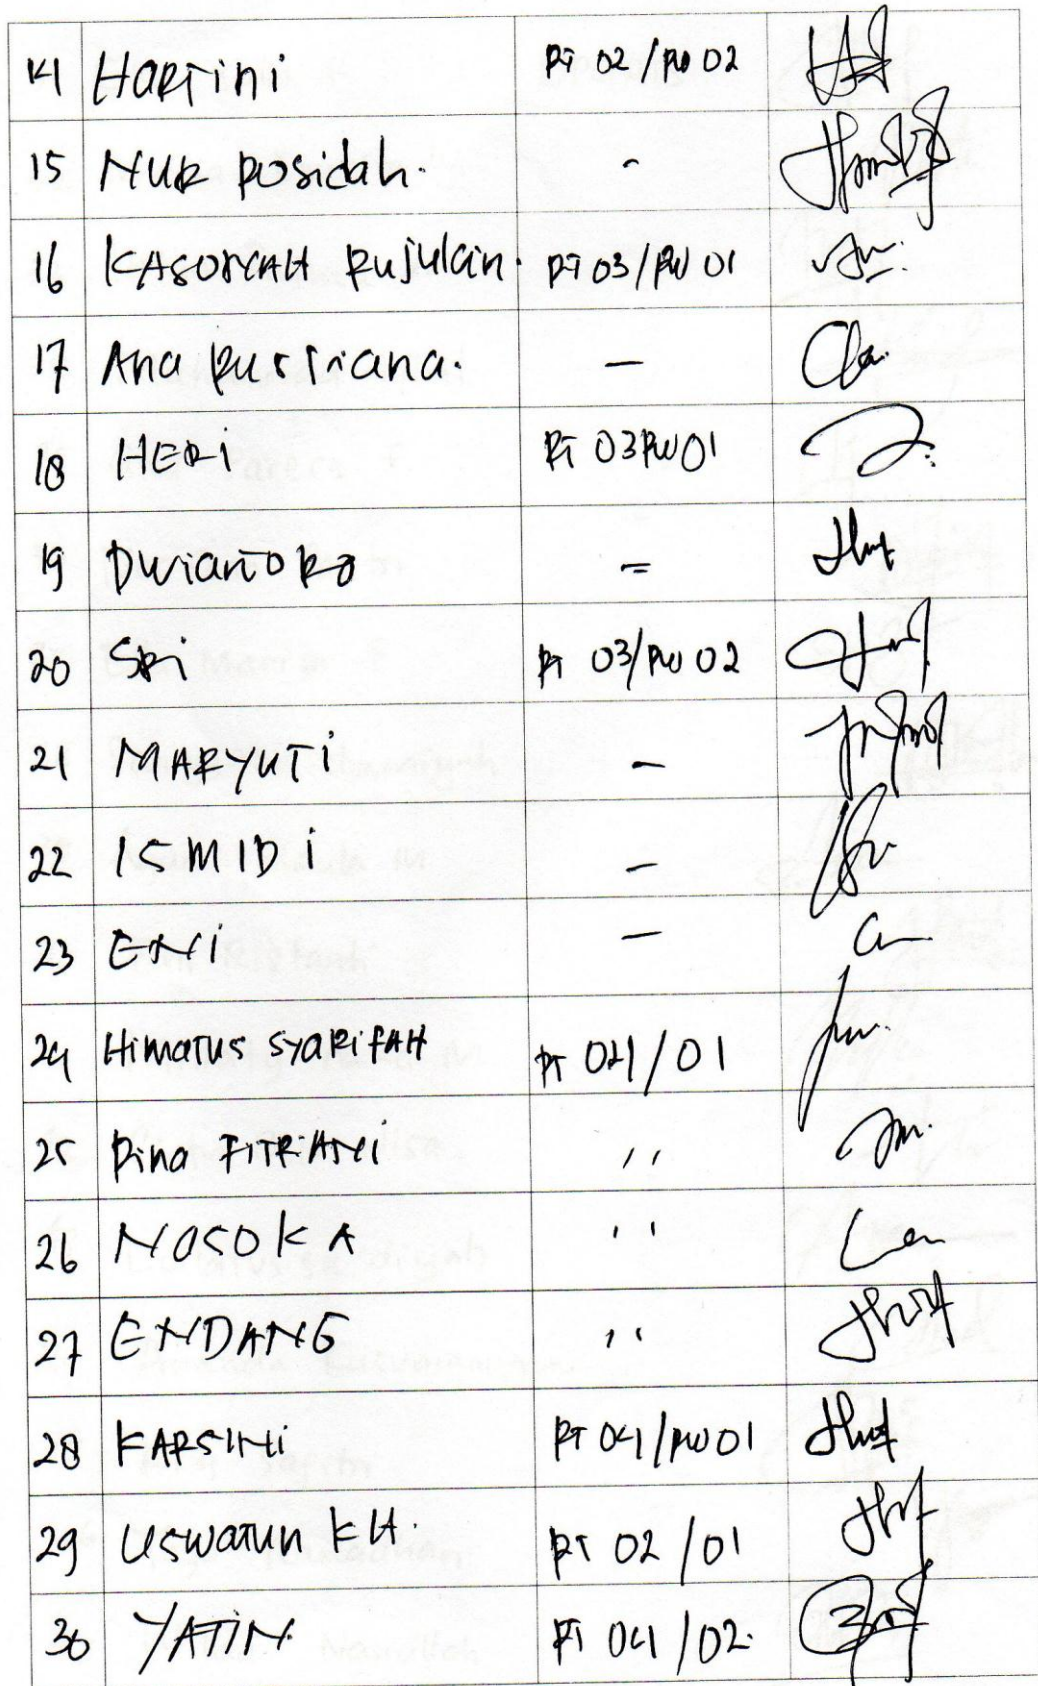 14 Hartini RT 02/RW 02
15 Nur Rosidah. -
16 KASORYAH Rujukan. RT 03/RW 01
17 Ana -
18 HERI RT 03 RW 01
19 Dwiantoro =
20 SRI RT 03/RW 02
21 MARYUTI -
22 ISMIDI -
23 ENI -
24 Himatus SyaRifAH RT 04/01
25 Rina FITRIANI ''
26 NOSOKA ''
27 ENDANG ''
28 KARSINI RT 04/RW 01
29 Uswatun KH. RT 02/01
30 YATIN RT 04/02.